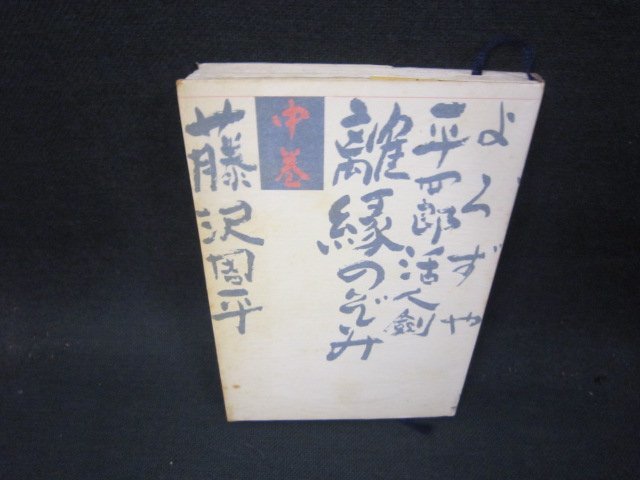 よろずや
平四郎活人剣
離縁のぞみ
中巻
藤沢周平